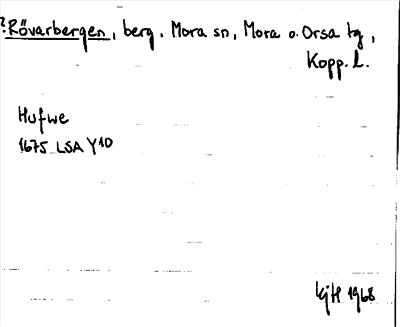 ?Rövarbergen, berg. Mora sn, Mora o. Orsa tg,
Kopp. L.
Hufwe
1675 LSA Y10
KjH 1968